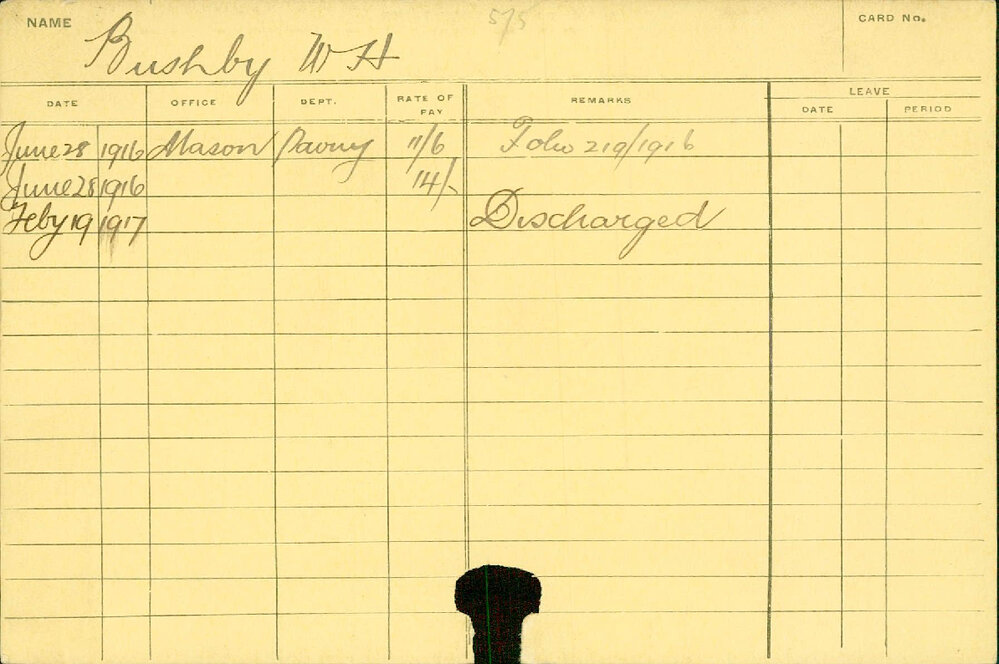 NAME
575
CARD No.
Bushby W H
DATE OFFICE DEPT. RATE OF PAY REMARKS LEAVE
DATE PERIOD
June 28 1916 Mason 11/6 Folio 219/1916
June 28 1916 14/-
Feby 19 1917 Discharged